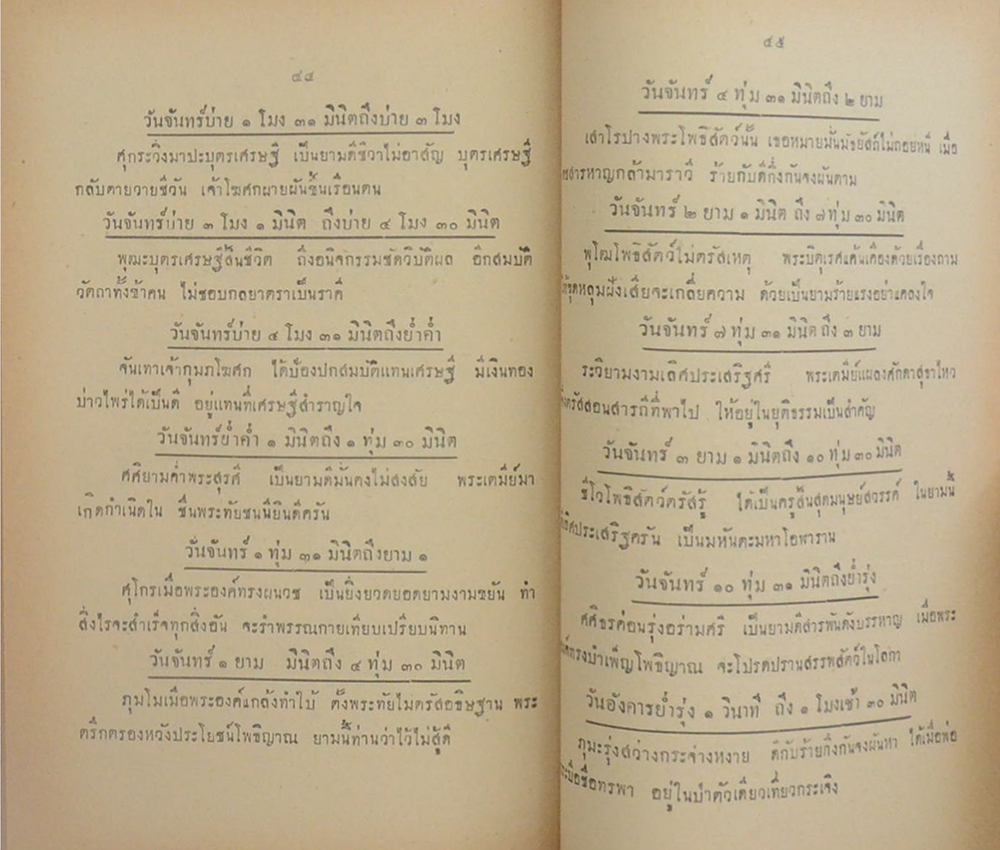 ๔๔
วันจันทร์บ่าย ๑ โมง ๓๑ มินิตถึงบ่าย ๓ โมง
ศุกระวิ่งมาปะบุตรเศรษฐี เป็นยามดีชีวาไม่อาสัญ บุตรเศรษฐี
กลับตายวายชีวัน เจ้าโฆศกผายผันขึ้นเรือนตน
วันจันทร์บ่าย ๓ โมง ๑ มินิต ถึงบ่าย ๔ โมง ๓๐ มินิต
พุฒะบุตรเศรษฐีสิ้นชีวิต ถึงอนิจกรรมชัดวิบัติผล อีกสมบัติ
วัตถาทั้งข้าคน ไม่ชอบกลยาตราเป็นราคี
วันจันทร์บ่าย ๔ โมง ๓๑ มินิตถึงย่ำค่ำ
จันเทาเจ้ากุมภโฆศก ได้ป้องปกสมบัติแทนเศรษฐี มีเงินทอง
บ่าวไพร่ได้เป็นดี อยู่แทนที่เศรษฐีสำราญใจ
วันจันทร์ย่ำค่ำ ๑ มินิตถึง ๑ ทุ่ม ๓๐ มินิต
ศศิยามค่ำพระสุรศี เป็นยามดีมั่นคงไม่สงสัย พระเตมีย์มา
เกิดกำเนิดใน ชื่นพระทัยชนนียินดีครัน
วันจันทร์ ๑ ทุ่ม ๓๑ มินิตถึงยาม ๑
ศุโกรเมื่อพระองค์ทรงผนวช เป็นยิ่งยวดยอดยามงามขยัน ทำ
สิ่งไรจะสำเร็จทุกสิ่งอัน จะรำพรรณกายเทียบเปรียบนิทาน
วันจันทร์ ๑ ยาม มินิตถึง ๔ ทุ่ม ๓๐ มินิต
ภุมโมเมื่อพระองค์แกล้งทำใบ้ ตั้งพระทัยไมตรัสอธิษฐาน พระ
ตรึกตรองหวังประโยชน์โพธิญาณ ยามนี้ท่านว่าไว้ไม่สู้ดี
๔๕
วันจันทร์ ๔ ทุ่ม ๓๑ มินิตถึง ๒ ยาม
เสาโรปางพระโพธิสัตว์นั้น เธอหมายมั่นมิขยัสก็ไม่ถอยหนี เมื่อ
สารหาญกล้ามาราวี ร้ายกับดีกึ่งกันจงผันตาม
วันจันทร์ ๒ ยาม ๑ มินิต ถึง ๗ ทุ่ม ๓๐ มินิต
พุโฒโพธิสัตว์ไม่ตรัสเหตุ พระบิตุเรศแค้นเคืองด้วยเรื่องถาม
ให้ขุดหลุมฝังเสียจะเกลี่ยความ ด้วยเป็นยามร้ายแรงอย่าแคลงใจ
วันจันทร์ ๗ ทุ่ม ๓๑ มินิตถึง ๓ ยาม
ระวิยามงามเลิศประเสริฐศรี พระเตมีย์แผลงศักดาสุธาไหว
ตรัสสอนสารถีที่พาไป ให้อยู่ในยุติธรรมเป็นสำคัญ
วันจันทร์ ๓ ยาม ๑ มินิตถึง ๑๐ ทุ่ม ๓๐ มินิต
ชีโวโพธิสัตว์ตรัสรู้ ได้เป็นครูสิ้นสุดมนุษย์สวรรค์ ในยามนี้
ประเสริฐครัน เป็นมหันตะมหาโอฬาราน
วันจันทร์ ๑๐ ทุ่ม ๓๑ มินิตถึงย่ำรุ่ง
ศศิธรค่อนรุ่งอร่ามศรี เป็นยามดีสารพันดังบรรหาญ เมื่อพระ
ทรงบำเพ็ญโพธิญาณ จะโปรดปรานสรรพสัตว์ในโลกา
วันอังคารย่ำรุ่ง ๑ วินาที ถึง ๑ โมงเช้า ๓๐ มินิต
ภุมะรุ่งสว่างกระจ่างหงาย ดีกับร้ายกึ่งกันจงผันหา ได้เมื่อพ่อ
ชื่อทรพา อยู่ในป่าตัวเดียวเที่ยวกระเจิง